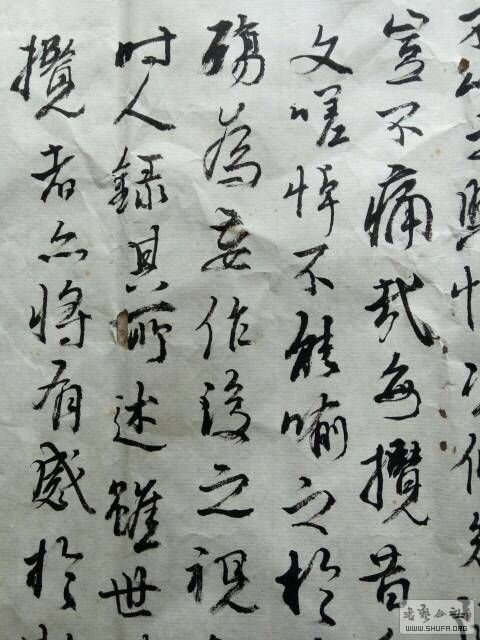 豈不痛哉每攬昔
文嗟悼不能喻之於
殤為妄作後之視
時人錄其所述雖世
攬者亦將有感於
書藝公社
WWW.SHUFA.ORG